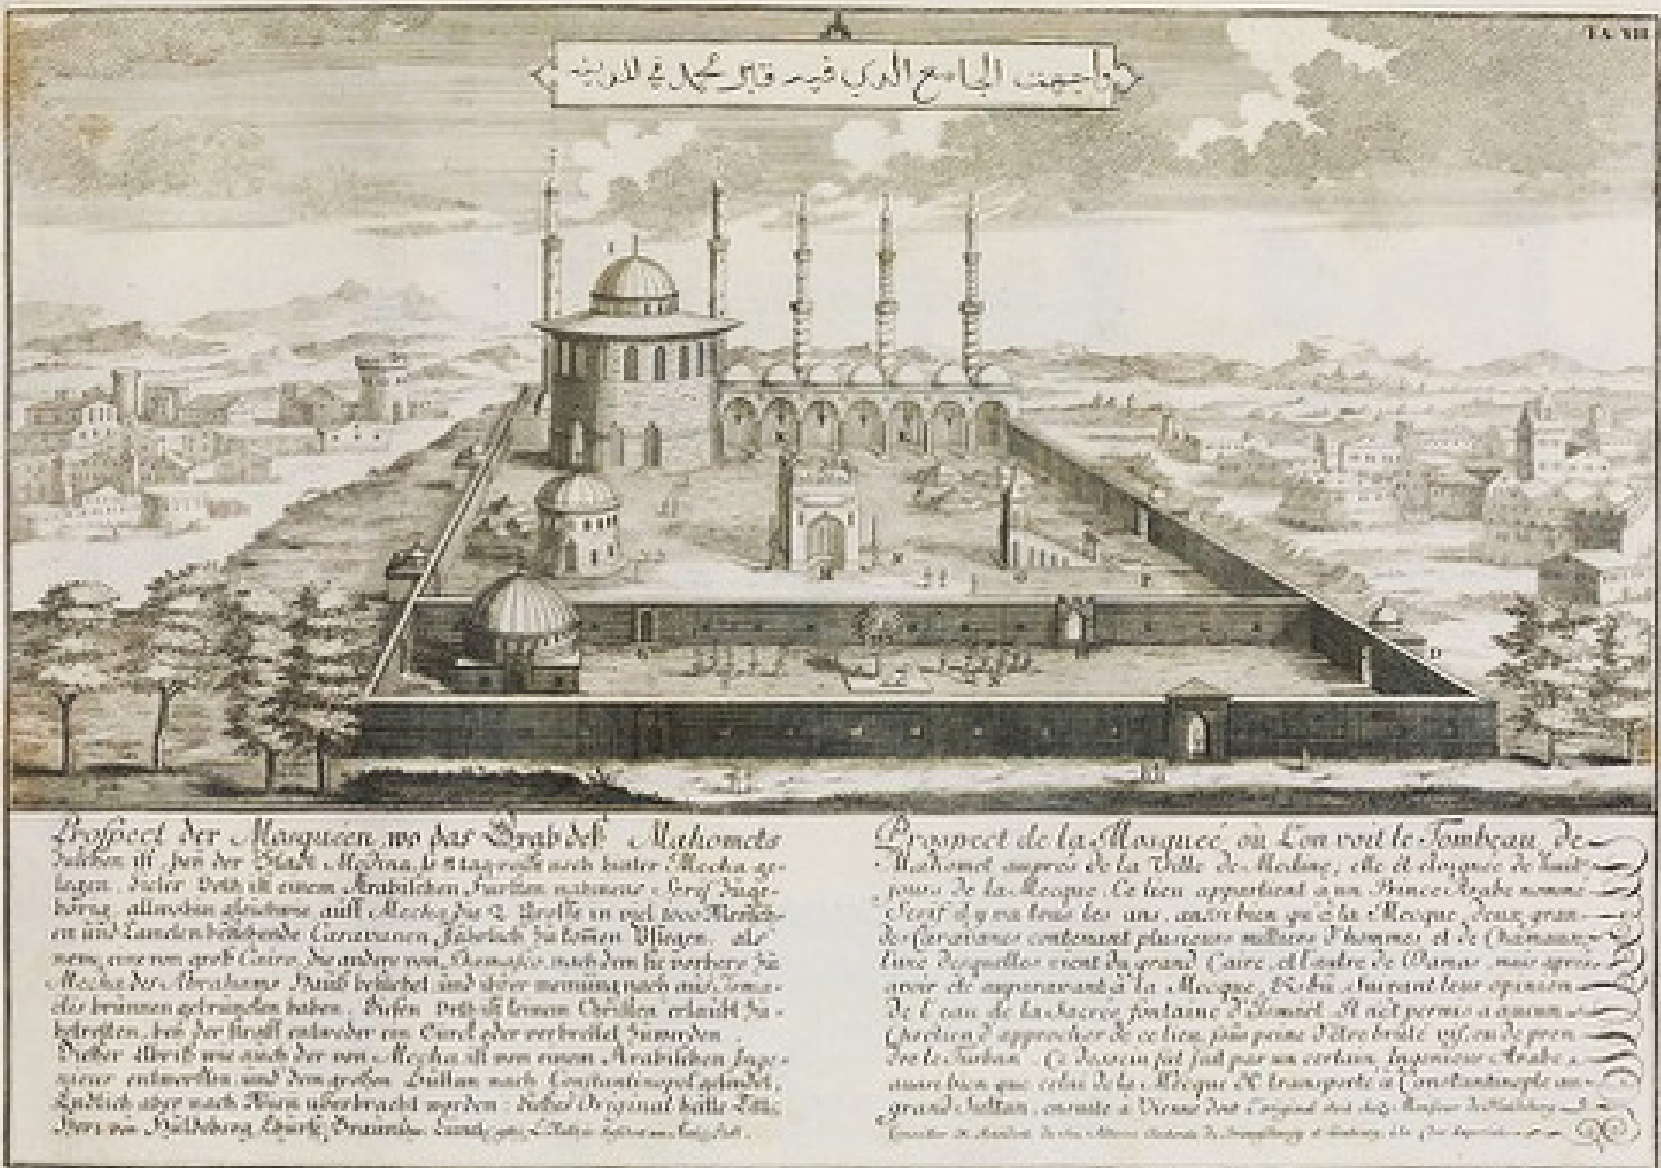 واجهت الجامع الدي فيه قابر محمد في المدينه
A
D
Prospect der Mosqueen, wo das Grab deß Mahomets
der Statt Medina, 8 tag reiß noch hinter Mecha ge-
legen. dieser Orth ist einem Arabischen Fürsten nahmens Serif Zuge-
hörig, allwohin gleichwie auff Mecha die 2 Große in viel 1000 Mensch-
en und Camelen bestehende Caravanen, Jährlich Zu komen Pflegen. als
nem; eine von groß Cairo, die andere von Damasco, nach dem sie vorhero Zu
Mecha des Abrahams Hauß und ihrer meinung nach aus Isma-
els brunnen getrunken haben. Diesen Orth ist keinem Christen erlaubt Zu-
betretten, bey der straff entweder ein Türck oder verbrellet Zuwerden.
Dießer Abriß wie auch der von Mecha ist von einem Arabischen Inge-
nieur entworffen und dem großen Sultan nach Constantinopel gesendet,
Endlich aber nach Wien überbracht worden: dießes Original hatte
Herr von
Prospect de la Mosqueé, où L'on voit le Tombeau, de
Mahomet aupres de la Ville de Medine, elle ét eloignée de huit
jours de la Mecque. Ce lieu appartient a un Prince Arabe nommé
Serif il y va tous les ans, aussi bien qu'à la Mecque, deux gran-
des Caravanes contenant plusieurs milliers d'hommes et de Chameaux,
l'une desquelles vient du grand Caire, et l'autre de Damas, mais aprés
avoir été auparavant à la Mecque, & bû, suivant leur opinion
de l'eau de la Sacrée fontaine d'Ismael. Il n'ét permis a aucun
Chretien d'approcher de ce lieu, sous peine d'être brulé vif, ou de pren-
dre le Turban. Ce dessein fut fait par un certain Ingenieur Arabe
aussi bien que celui de la Mecque & transporté a Constantinople au
grand Sultan, ensuite à Vienne dont l'original étoit chez Monsieur de